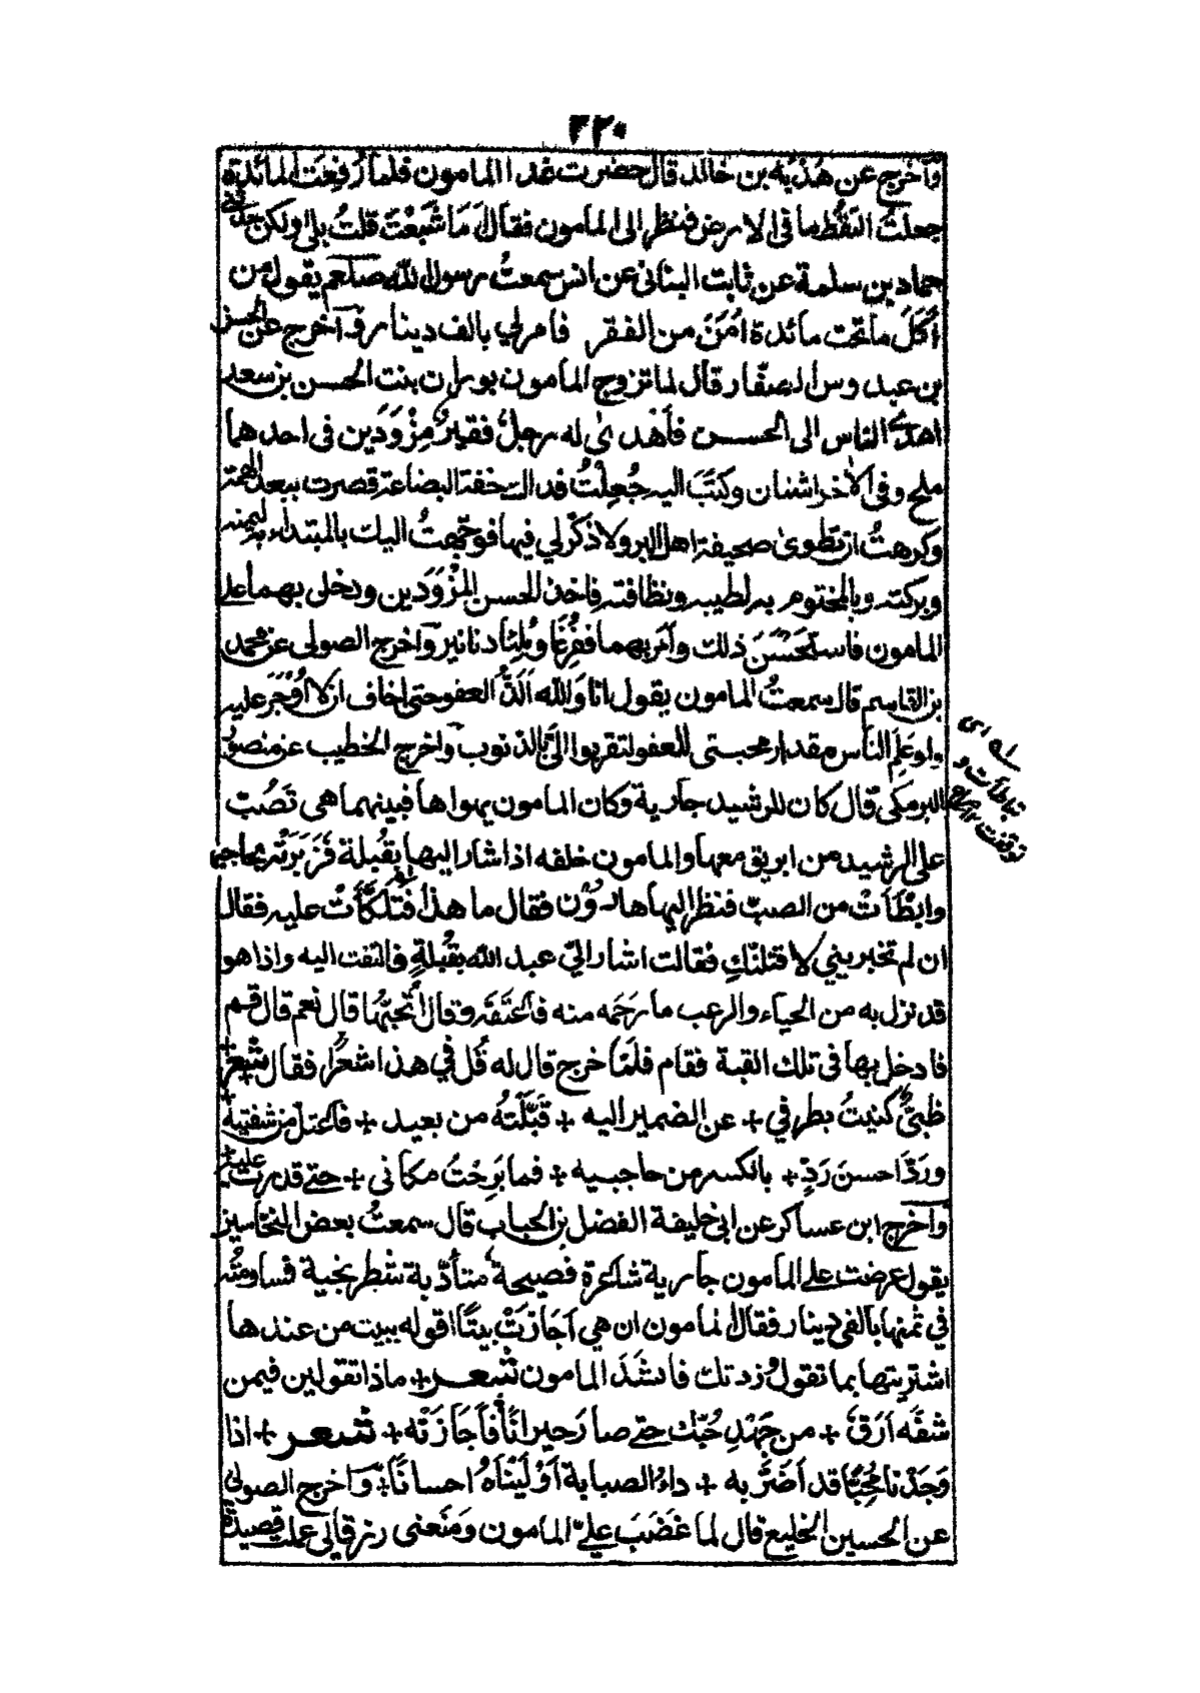 ٣٢٠
وَأخرج عن هُدْبة بن خالد قال حضرت غدا المامون فلما رُفِعَت المائدة
جعلتُ التقُط ما فى الارض فنظر الى المامون فقال مَا شَبِعْتَ قلتُ بلى ولكن حدثنى
حماد بن سلمة عن ثابت البنانى عن انس سمعتُ رسول الله صلعم يقول من
أكَلَ ما تحت مائدة اَمِنَ من الفقر فامر لي بالف دينار وَآخرج عن الحسن
بن عبدوس الصفّار قال لما تزوج المامون بوران بنت الحسن بن سعد
اهدى الناس الى الحسن فأهْدىٰ له رجلٌ فقيرٌ مِزْوَدَين فى احدهما
ملح وفى الآخر اشنان وكتَبَ اليه جُعِلْتُ فداك خفة البضاعة قصرت ببعد الهمة
وكرهتُ ان تطوىٰ صحيفة اهل البر ولا ذكر لي فيها فوجّهتُ اليك بالمبتداء به ليمنه
وبركته وبالمختوم به لطيبه ونظافته فاخذ الحسن المزْوَدَين ودخل بهما على
المامون فاستَحْسَنَ ذلك وأمر بهما ففُرِغَا ومُلِئَا دنانير وآخرج الصولى عن محمد
بن القاسم قال سمعتُ المامون يقول انا وَالله اَلَذُّ العفو حتى اخاف ان لا اُوْجَرَ عليه
ولو عَلِم الناس مقدار محبتى للعفو لتقربوا الىّ بالذنوب وآخرج الخطيب عن منصور
البرمكى قال كان للرشيد جارية وكان المامون يهواها فبينما هى تَصُبّ
على الرشيد من ابريق معها والمامون خلفه اذ اشار اليها بقُبلة فَزَبَرَتْه بحاجبها
وابطَأتْ من الصبّ فنظر اليها هارون فقال ما هذا فتَلَكَّأتْ عليه فقال
ان لم تخبرينى لاقتلنّكِ فقالت اشار الىّ عبد الله بقُبلةٍ فالتفت اليه واذا هو
قد نزل به من الحياء والرعب ما رَحِمَه منه فاعتنقه وقال أتحبّها قال نعم قال قم
فادخل بها فى تلك القبة فقام فلمّا خرج قال له قُل في هذا شعرًا فقال شعر +
ظبىٌ كنيتُ بطرفي + عن الضمير اليه + قَبَّلْتُه من بعيد + فاعتلّ من شفتيه +
ورَدّ احسنَ رَدٍّ + بالكسر من حاجبيه + فما بَرِحْتُ مكانى + حتى قدرت عليه +
وآخرج ابن عساكر عن ابى خليفة الفضل بن الحباب قال سمعتُ بعض النخاسين
يقول عرضت على المامون جارية شاعرة فصيحة متأدّبة شطرنجية فساومتُه
في ثمنها بالفى دينار فقال المامون ان هي اَجَازَتْ بيتًا اقوله ببيت من عندها
اشتريتها بما تقول وزدتك فانشَدَ المامون شعر + ماذا تقولين فيمن
شفّه اَرَقٌ + من جَهْدِ حُبّك حتى صار حيرانًا فاَجَازَتْه + شعر + اذا
وَجَدْنا مُحِبًّا قد اَضَرَّ به + داءُ الصبابة اَوْلَيْنَاهُ احسانًا + وَآخرج الصولى
عن الحسين الخليع قال لما غَضِبَ علىّ المامون ومَنَعنى رزقا لى عملت قصيدة